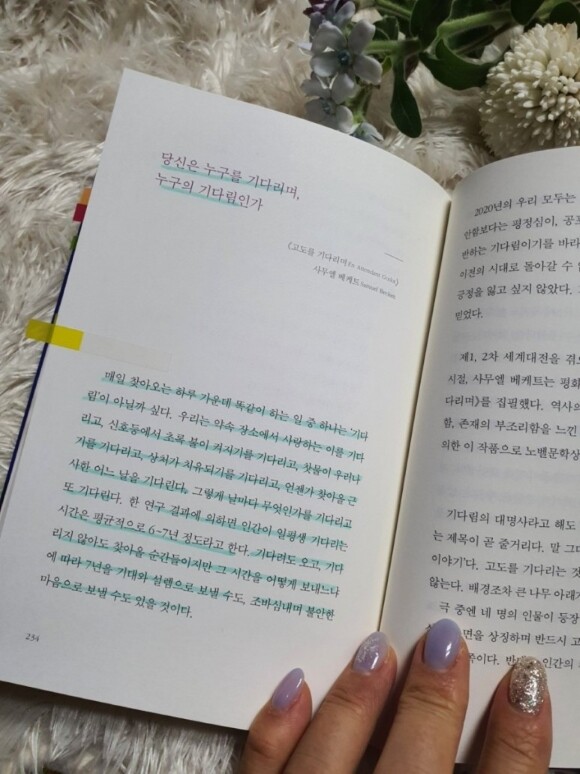 당신은 누구를 기다리며,
누구의 기다림인가
《고도를 기다리며 En Attendant Godot》
사무엘 베케트 Samuel Beckett
매일 찾아오는 하루 가운데 똑같이 하는 일 중 하나는 '기다
림'이 아닐까 싶다. 우리는 약속 장소에서 사랑하는 이를 기다
리고, 신호등에서 초록 불이 켜지기를 기다리고, 찻물이 우러나
기를 기다리고, 상처가 치유되기를 기다리고, 언젠가 찾아올 근
사한 어느 날을 기다린다. 그렇게 날마다 무엇인가를 기다리고
또 기다린다. 한 연구 결과에 의하면 인간이 일평생 기다리는
시간은 평균적으로 6~7년 정도라고 한다. 기다려도 오고, 기다
리지 않아도 찾아올 순간들이지만 그 시간을 어떻게 보내느냐
에 따라 7년을 기대와 설렘으로 보낼 수도, 조바심내며 불안한
마음으로 보낼 수도 있을 것이다.
234
2020년의 우리 모두는
안함보다는 평정심이, 공포
반하는 기다림이기를 바라
이전의 시대로 돌아갈 수 없
긍정을 잃고 싶지 않았다.
믿었다.
제1, 2차 세계대전을 겪으
시절, 사무엘 베케트는 평화
다리며》를 집필했다. 역사의
함, 존재의 부조리함을 느낀
의한 이 작품으로 노벨문학상
기다림의 대명사라고 해도
는 제목이 곧 줄거리다. 말 그대
이야기'다. 고도를 기다리는 것
않는다. 배경조차 큰 나무 아래
극 중엔 네 명의 인물이 등장
면을 상징하며 반드시 고
쪽이다. 반대 인간의